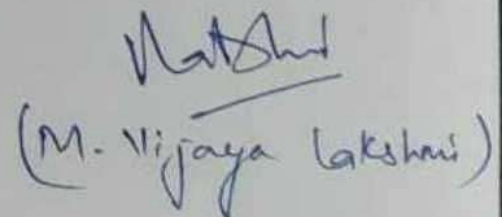 (M. Vijaya Lakshmi)